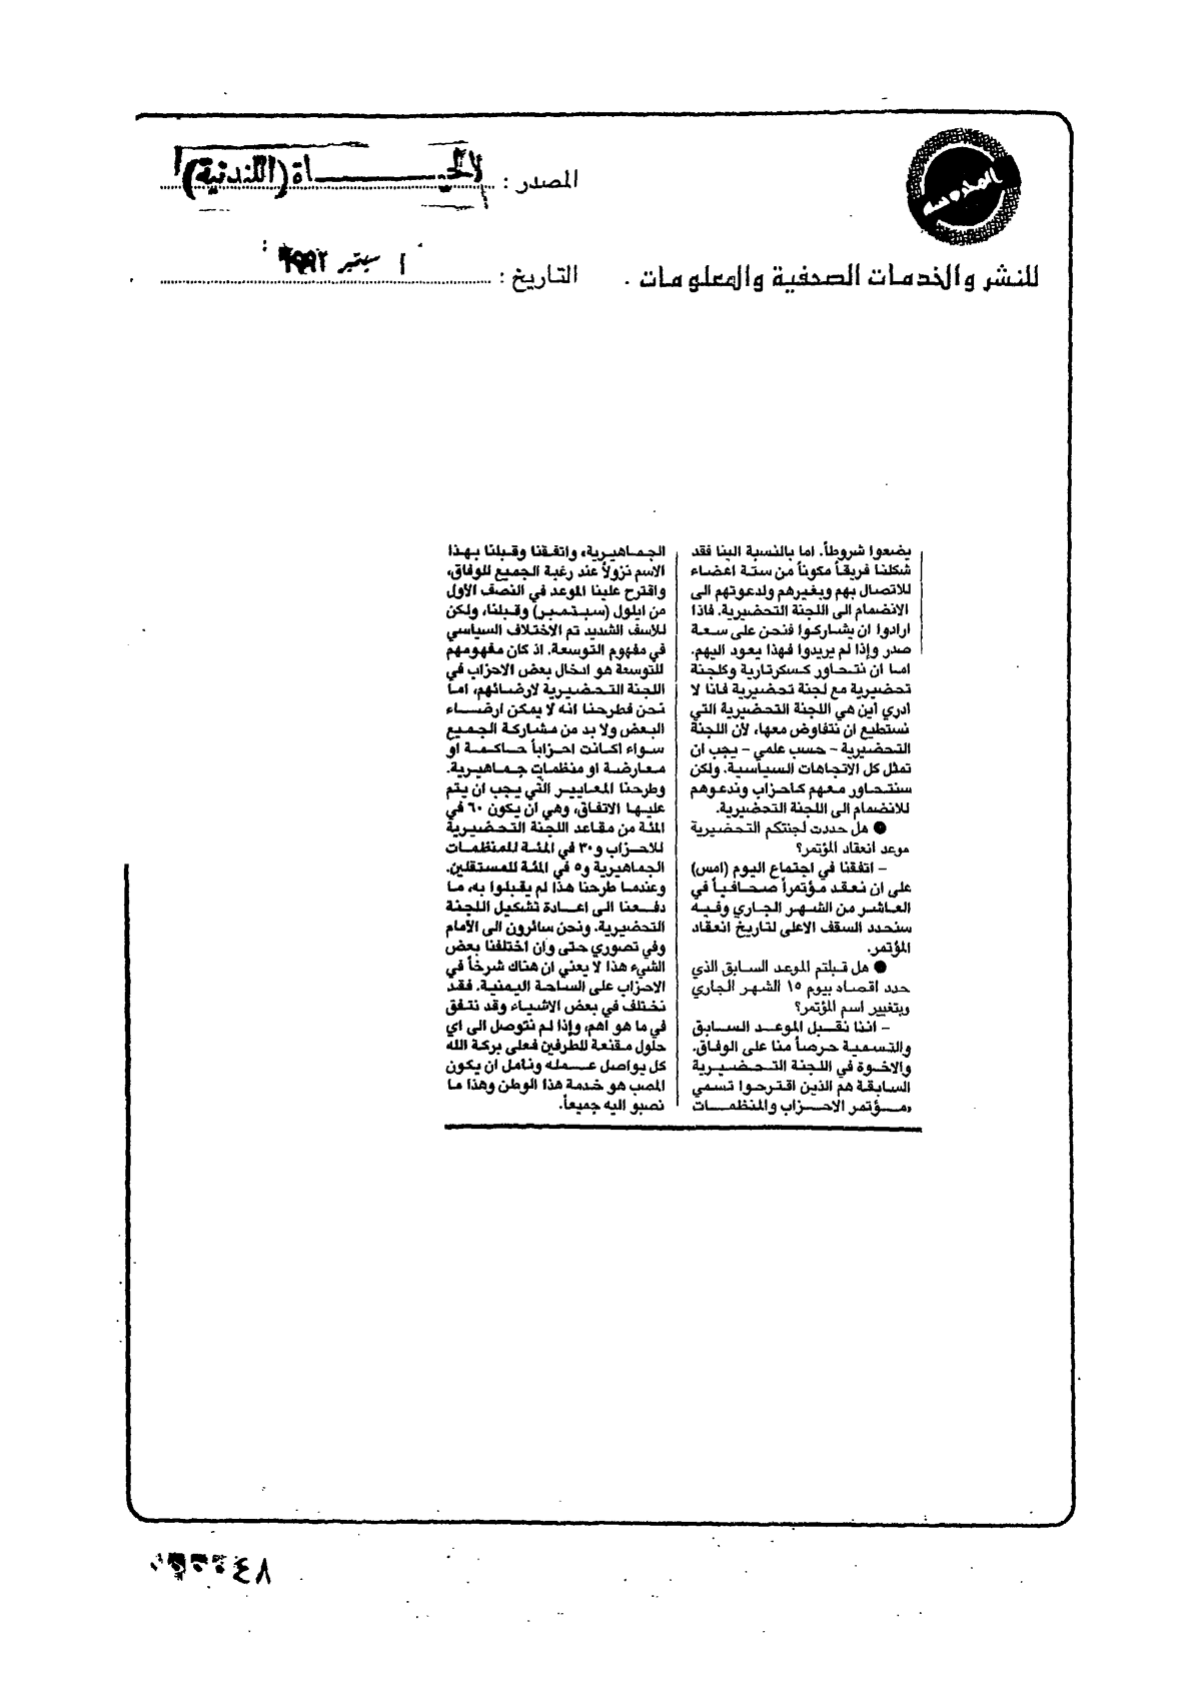 المصدر : الحيـــاة (اللندنية)
للنشر والخدمات الصحفية والمعلومات .
التاريخ : ١ سبتمبر ١٩٩٢
يضعوا شروطاً. اما بالنسبة الينا فقد
شكلنا فريقاً مكوناً من ستة اعضاء
للاتصال بهم وبغيرهم ولدعوتهم الى
الانضمام الى اللجنة التحضيرية. فاذا
ارادوا ان يشاركوا فنحن على سعة
صدر وإذا لم يريدوا فهذا يعود اليهم.
اما ان نتحاور كسكرتارية وكلجنة
تحضيرية مع لجنة تحضيرية فانا لا
ادري اين هي اللجنة التحضيرية التي
نستطيع ان نتفاوض معها، لأن اللجنة
التحضيرية - حسب علمي - يجب ان
تمثل كل الاتجاهات السياسية. ولكن
سنتحاور معهم كاحزاب وندعوهم
للانضمام الى اللجنة التحضيرية.
● هل حددت لجنتكم التحضيرية
موعد انعقاد المؤتمر؟
- اتفقنا في اجتماع اليوم (امس)
على ان نعقد مؤتمراً صحافياً في
العاشر من الشهر الجاري وفيه
سنحدد السقف الاعلى لتاريخ انعقاد
المؤتمر.
● هل قبلتم الموعد السابق الذي
حدد اقصاه بيوم ١٥ الشهر الجاري
وبتغيير اسم المؤتمر؟
- اننا نقبل الموعد السابق
والتسمية حرصاً منا على الوفاق.
والاخوة في اللجنة التحضيرية
السابقة هم الذين اقترحوا تسمي
«مؤتمر الاحزاب والمنظمات
الجماهيرية» واتفقنا وقبلنا بهذا
الاسم نزولاً عند رغبة الجميع للوفاق،
واقترح علينا الموعد في النصف الأول
من ايلول (سبتمبر) وقبلنا، ولكن
للاسف الشديد تم الاختلاف السياسي
في مفهوم التوسعة. اذ كان مفهومهم
للتوسعة هو ادخال بعض الاحزاب في
اللجنة التحضيرية لارضائهم، اما
نحن فطرحنا انه لا يمكن ارضاء
البعض ولا بد من مشاركة الجميع
سواء اكانت احزاباً حاكمة او
معارضة او منظمات جماهيرية.
وطرحنا المعايير التي يجب ان يتم
عليها الاتفاق، وهي ان يكون ٦٠ في
المئة من مقاعد اللجنة التحضيرية
للاحزاب و٣٠ في المئة للمنظمات
الجماهيرية و٥ في المئة للمستقلين.
وعندما طرحنا هذا لم يقبلوا به، ما
دفعنا الى اعادة تشكيل اللجنة
التحضيرية. ونحن سائرون الى الأمام
وفي تصوري حتى وان اختلفنا بعض
الشيء هذا لا يعني ان هناك شرخاً في
الاحزاب على الساحة اليمنية. فقد
نختلف في بعض الاشياء وقد نتفق
في ما هو اهم، وإذا لم نتوصل الى اي
حلول مقنعة للطرفين فعلى بركة الله
كل يواصل عمله ونأمل ان يكون
المصب هو خدمة هذا الوطن وهذا ما
نصبو اليه جميعاً.